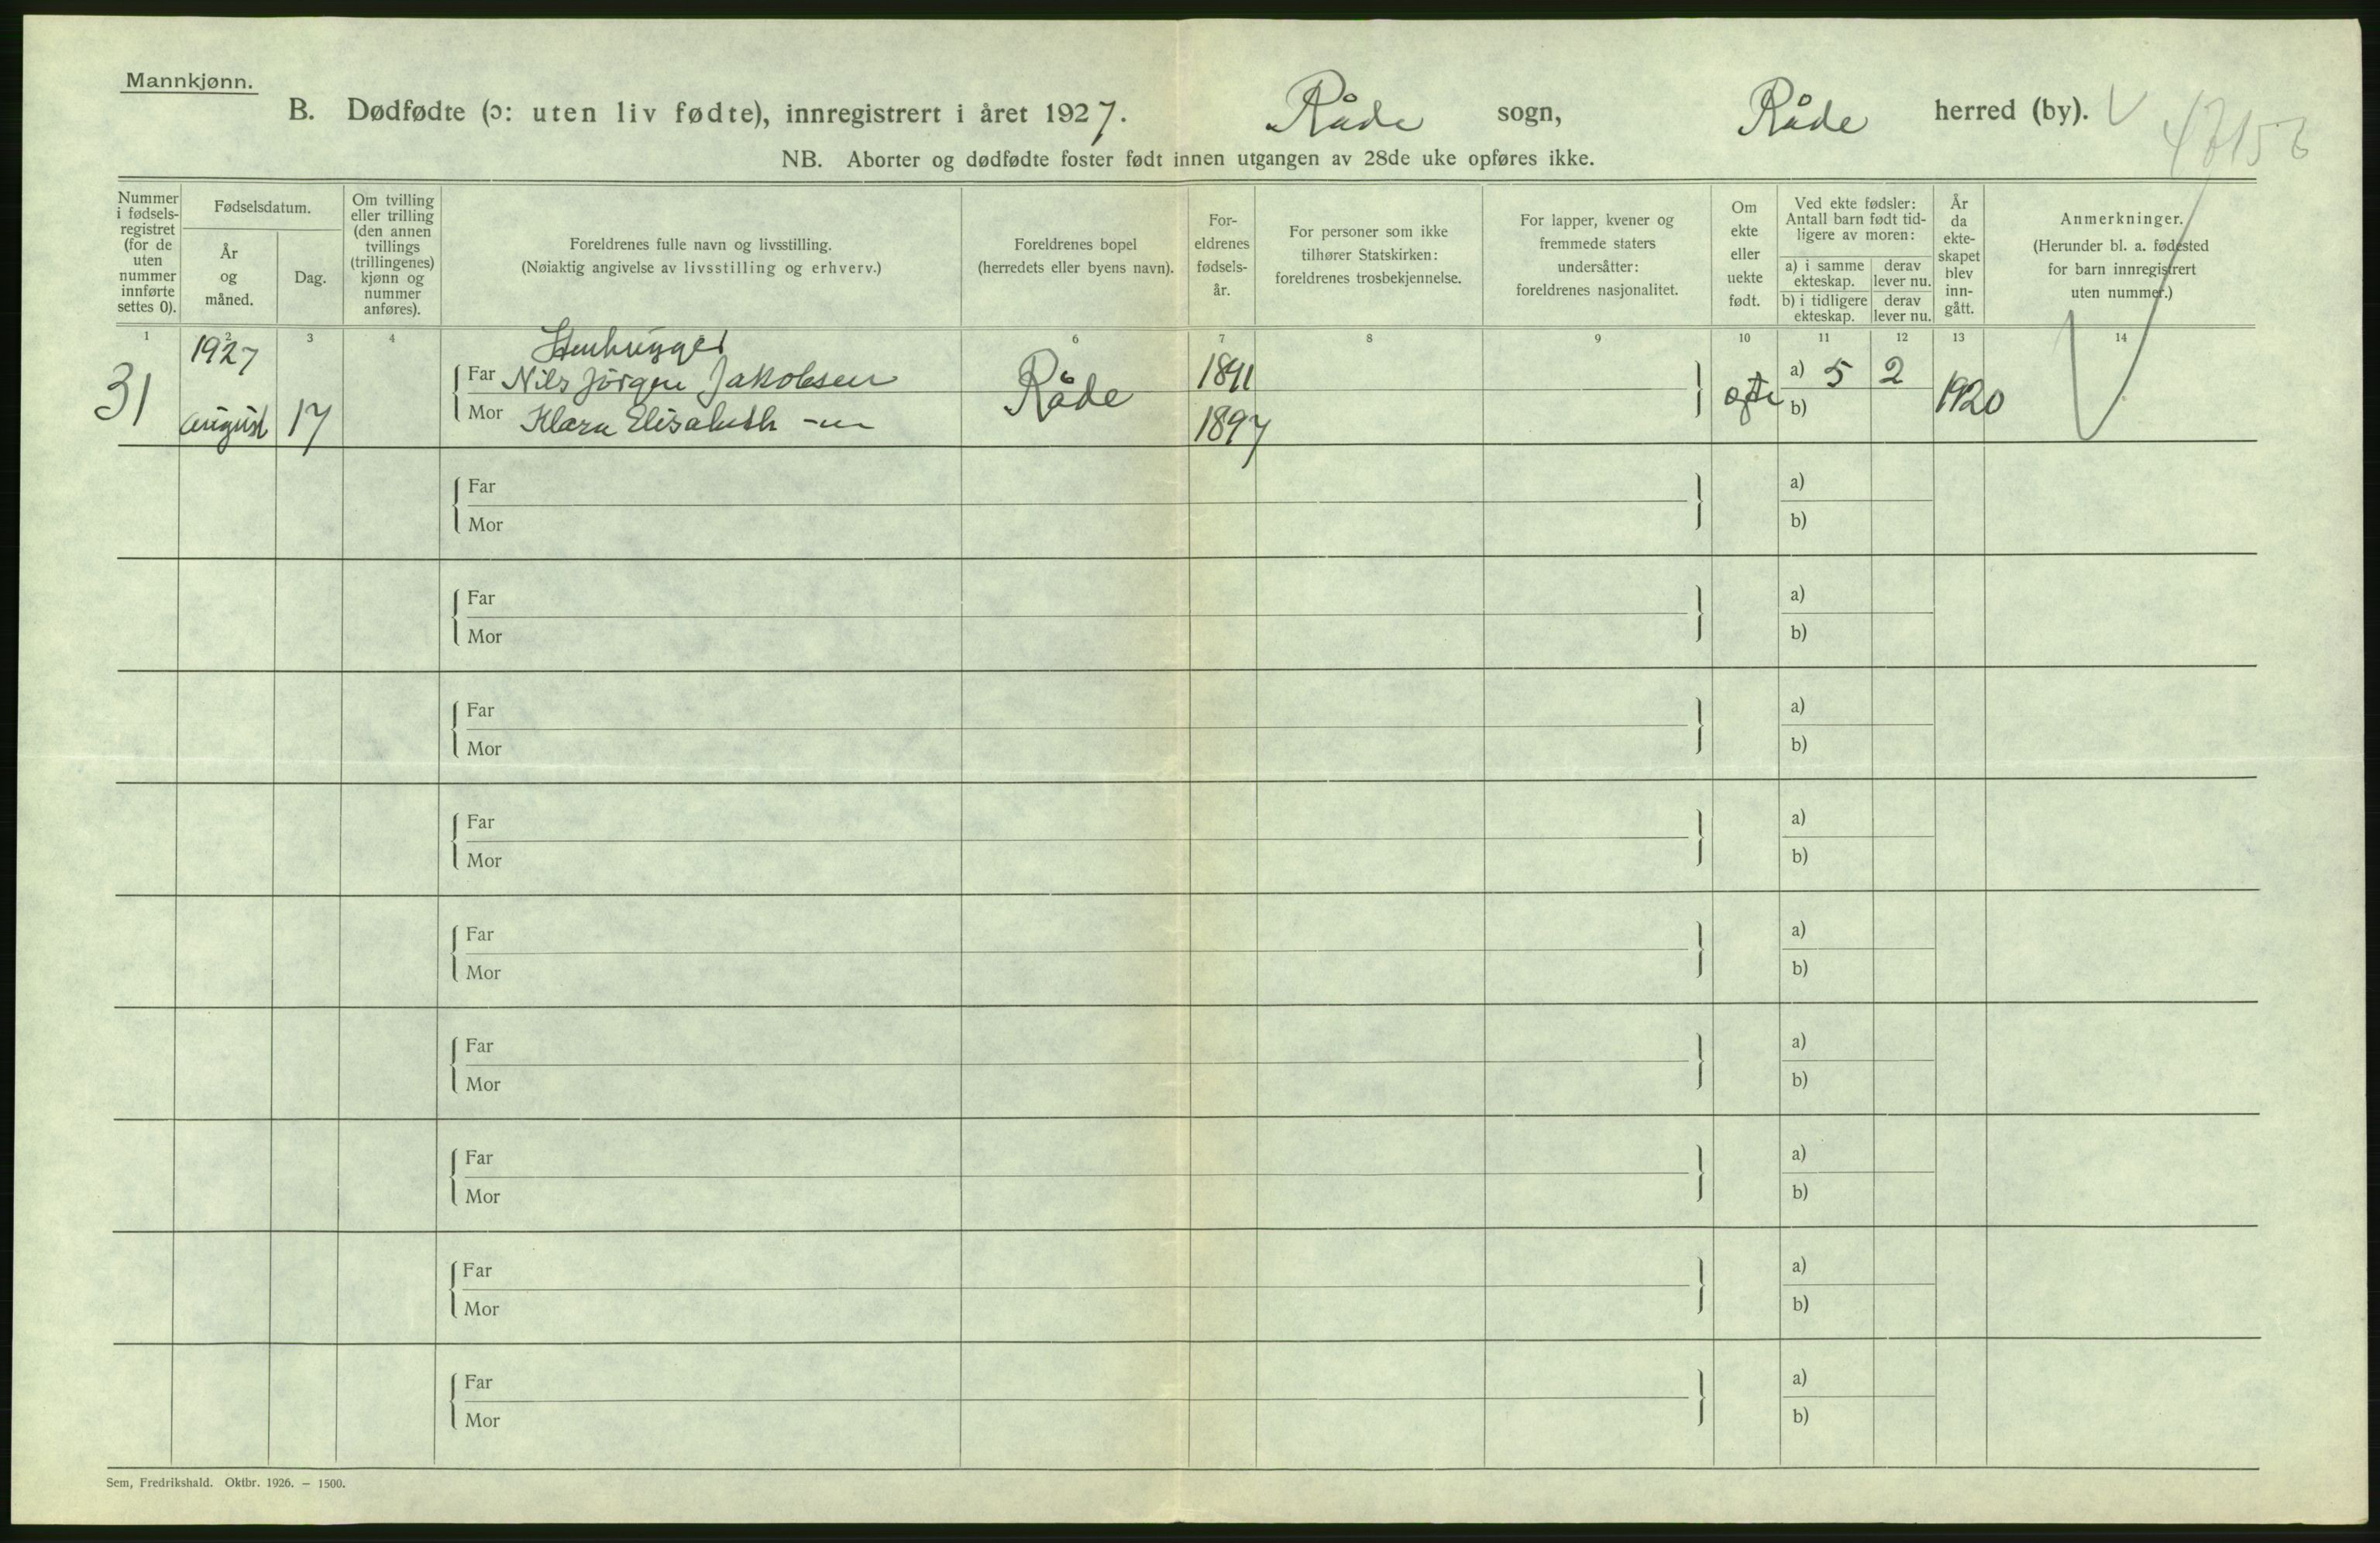 Mannkjønn.
B. Dødfødte (ɔ: uten liv fødte), innregistrert i året 1927. Råde sogn, Råde herred (by). V
NB. Aborter og dødfødte foster født innen utgangen av 28de uke opføres ikke.
Nummer
i fødsels-
registret
(for de
uten
nummer
innførte
settes 0).
Fødselsdatum.
År
og
måned.
Dag.
Om tvilling
eller trilling
(den annen
tvillings
(trillingenes)
kjønn og
nummer
anføres).
Foreldrenes fulle navn og livsstilling.
(Nøiaktig angivelse av livsstilling og erhverv.)
Foreldrenes bopel
(herredets eller byens navn).
For-
eldrenes
fødsels-
år.
For personer som ikke
tilhører Statskirken:
foreldrenes trosbekjennelse.
For lapper, kvener og
fremmede staters
undersåtter:
foreldrenes nasjonalitet.
Om
ekte
eller
uekte
født.
Ved ekte fødsler:
Antall barn født tid-
ligere av moren:
a) i samme
ekteskap.
derav
lever nu.
b) i tidligere
ekteskap.
derav
lever nu.
År
da
ekte-
skapet
blev
inn-
gått.
Anmerkninger.
(Herunder bl. a. fødested
for barn innregistrert
uten nummer.)
1 2 3 4 6 7 8 9 10 11 12 13 14
31
1927
august
17
Stenhugger
Far Nils Jörgen Jakobsen
Mor Klara Elisabeth -"-
Råde
1891
1897
ekte
a) 5 2
b)
1920
Far
Mor
a)
b)
Far
Mor
a)
b)
Far
Mor
a)
b)
Far
Mor
a)
b)
Far
Mor
a)
b)
Far
Mor
a)
b)
Far
Mor
a)
b)
Far
Mor
a)
b)
Far
Mor
a)
b)
Sem, Fredrikshald. Oktbr. 1926. – 1500.